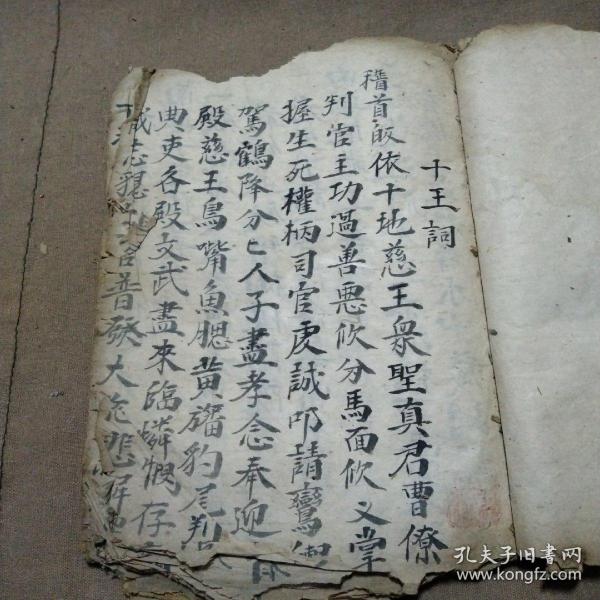 十王詞
稽首皈依十地慈王衆聖真君曹僚
判官主功過善惡攸分馬面攸乂掌
握生死權柄司官虔誠叩請鸞御
駕鶴降分亡人子盡孝念奉迎
殿慈王鳥嘴魚腮黄旛豹尾判
典吏各殿文武盡來臨憐憫存
誠志
普發大慈悲
孔夫子旧书网
www.kongfz.com